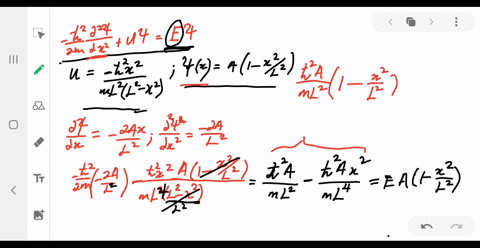 -ħ²/2m d²Ψ/dx² + UΨ = EΨ
U = -ħ²x²/mL²(L²-x²) ; Ψ(x) = A(1-x²/L²)
ħ²A/mL² (1 - x²/L²)
dΨ/dx = -2Ax/L² ; d²Ψ/dx² = -2A/L²
-ħ²/2m (-2A/L²) - ħ²x²A(1-x²/L²)/mL⁴(L²-x²)/L² = ħ²A/mL² - ħ²Ax²/mL⁴ = EA(1-x²/L²)
Tт